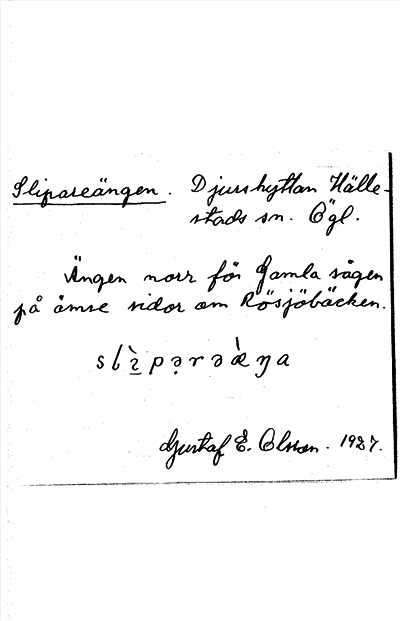 Slipareängen. Djurshyttan Hälle-
stads sn. Ögl.
Ängen norr för Gamla sågen
på ömse sidor om Rösjöbäcken.
Gustaf E. Olsson. 1927.